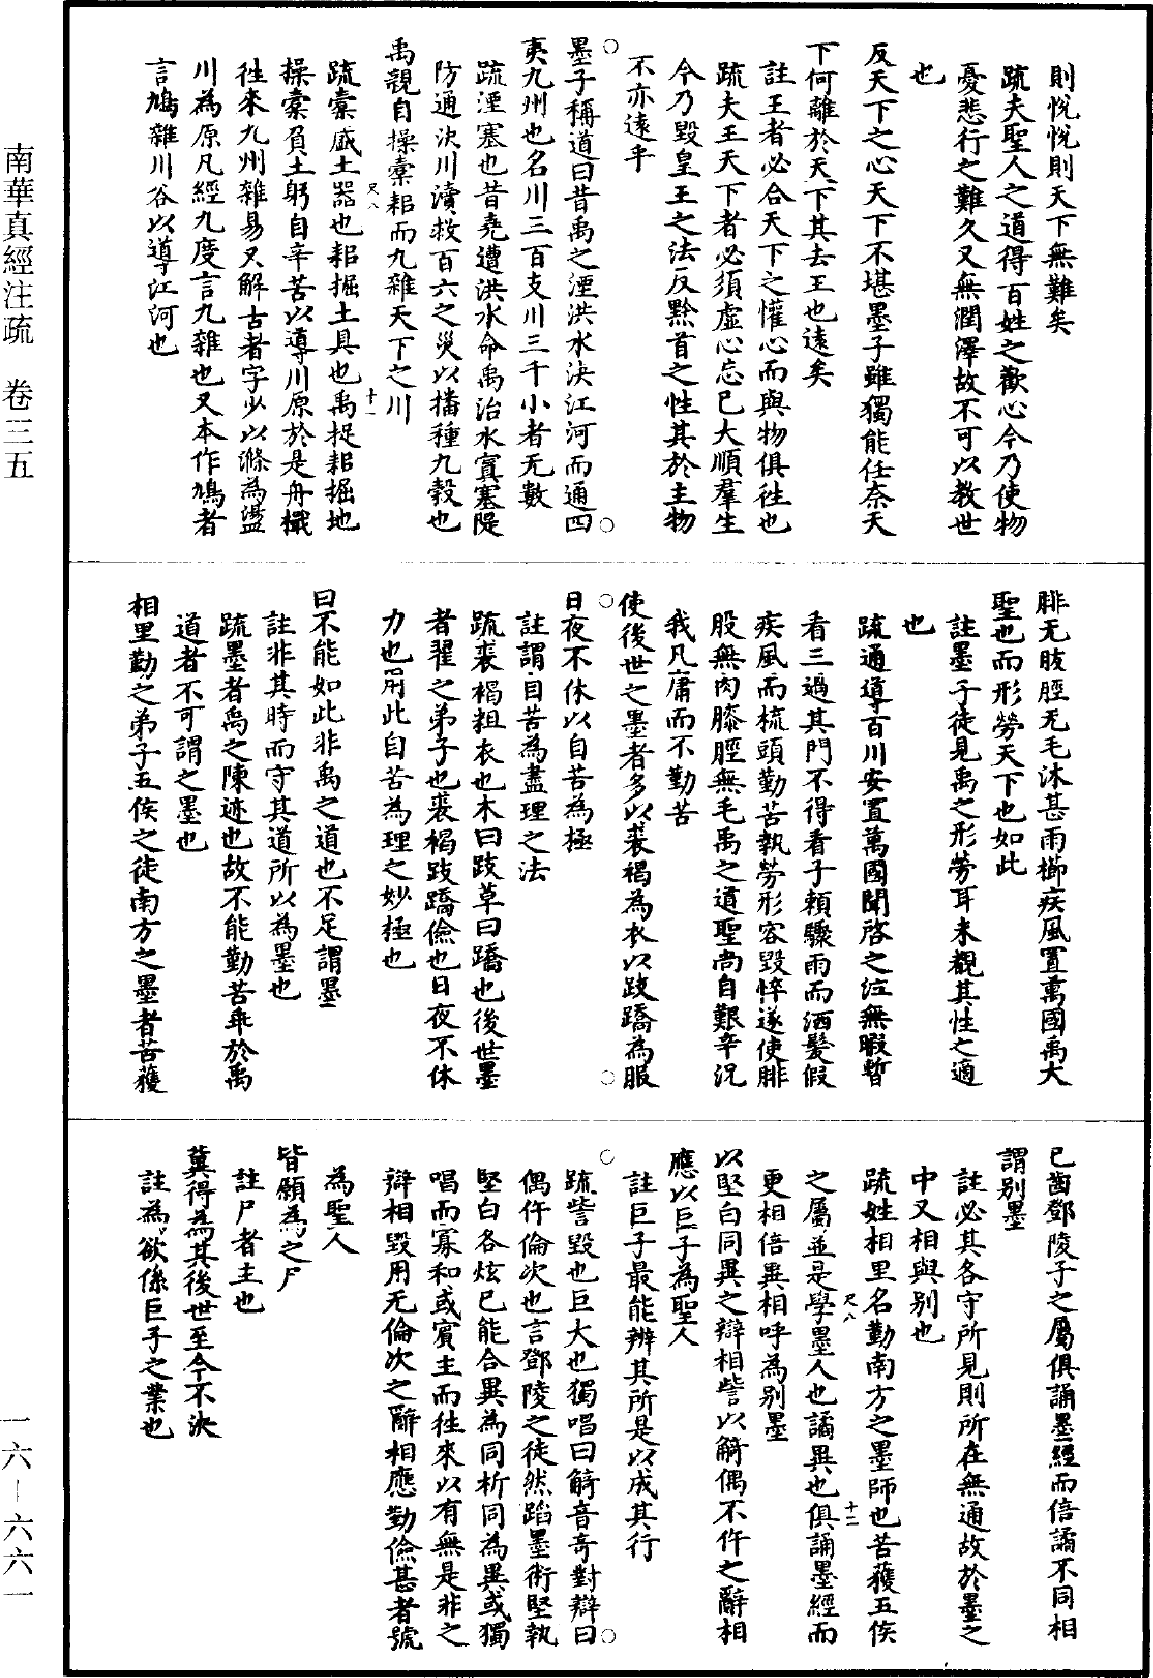 則悅悅則天下無難矣
疏夫聖人之道得百姓之歡心今乃使物
憂悲行之難久又無潤澤故不可以教世
也
反天下之心天下不堪墨子雖獨能任奈天
下何離於天下其去王也遠矣
註王者必合天下之懽心而與物俱徃也
疏夫王天下者必須虛心忘己大順羣生
今乃毀皇王之法反黔首之性其於主物
不亦遠乎
墨子稱道曰昔禹之湮洪水決江河而通四
夷九州也名川三百支川三千小者无數
疏湮塞也昔堯遭洪水命禹治水窴塞隄
防通決川瀆救百六之災以播種九榖也
禹親自操橐耜而九雜天下之川
疏橐盛土器也耜掘土具也禹捉耜掘地
操橐負土躬自辛苦以導川原於是舟檝
徃來九州雜易又解古者字少以滌為盪
川為原凡經九度言九雜也又本作鳩者
言鳩雜川谷以導江河也
腓无胈脛无毛沐甚雨櫛疾風置萬國禹大
聖也而形勞天下也如此
註墨子徒見禹之形勞耳未覩其性之適
也
疏通導百川安置萬國聞啓之泣無暇暫
看三過其門不得看子賴驟雨而洒髮假
疾風而梳頭勤苦執勞形容毀悴遂使腓
股無肉膝脛無毛禹之道聖尚自艱辛況
我凡庸而不勤苦
使後世之墨者多以裘褐為衣以跂蹻為服
日夜不休以自苦為極
註謂自苦為盡理之法
疏裘褐粗衣也木曰跂草曰蹻也後世墨
者翟之弟子也裘褐跂蹻儉也日夜不休
力也用此自苦為理之妙極也
曰不能如此非禹之道也不足謂墨
註非其時而守其道所以為墨也
疏墨者禹之陳迹也故不能勤苦乖於禹
道者不可謂之墨也
相里勤之弟子五侯之徒南方之墨者苦獲
已齒鄧陵子之屬俱誦墨經而倍譎不同相
謂別墨
註必其各守所見則所在無通故於墨之
中又相與別也
疏姓相里名勤南方之墨師也苦獲五侯
之屬並是學墨人也譎異也俱誦墨經而
更相倍異相呼為別墨
以堅白同異之辯相訾以觭偶不仵之辭相
應以巨子為聖人
註巨子最能辨其所是以成其行
疏訾毀也巨大也獨唱曰觭音奇對辯曰
偶仵倫次也言鄧陵之徒然蹈墨術堅執
堅白各炫己能合異為同析同為異或獨
唱而寡和或賓主而徃來以有無是非之
辯相毀用无倫次之辭相應勤儉甚者號
為聖人
皆願為之尸
註尸者主也
冀得為其後世至今不決
註為欲係巨子之業也
南華真經注疏 卷三五
一六—六六一